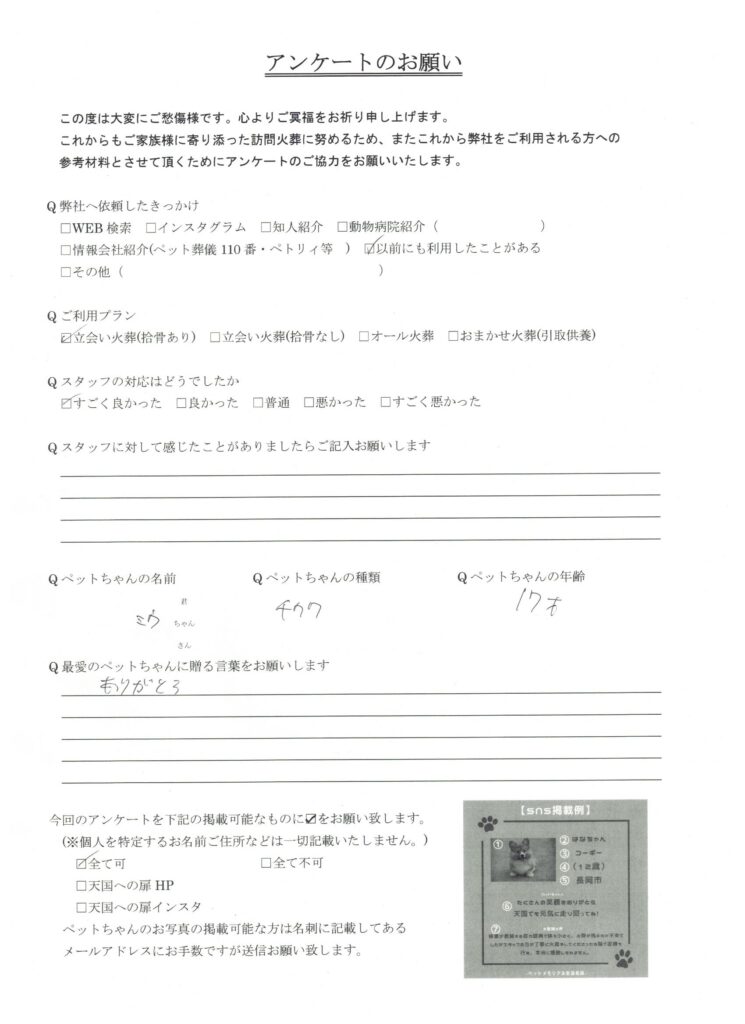 アンケートのお願い
この度は大変にご愁傷様です。心よりご冥福をお祈り申し上げます。
これからもご家族様に寄り添った訪問火葬に努めるため、またこれから弊社をご利用される方への
参考材料とさせて頂くためにアンケートのご協力をお願いいたします。
Q 弊社へ依頼したきっかけ
□WEB 検索 □インスタグラム □知人紹介 □動物病院紹介（ ）
□情報会社紹介(ペット葬儀 110 番・ペトリィ等 ) ☑以前にも利用したことがある
□その他（ ）
Q ご利用プラン
☑立会い火葬(拾骨あり) □立会い火葬(拾骨なし) □オール火葬 □おまかせ火葬(引取供養)
Q スタッフの対応はどうでしたか
☑すごく良かった □良かった □普通 □悪かった □すごく悪かった
Q スタッフに対して感じたことがありましたらご記入お願いします
Q ペットちゃんの名前 Q ペットちゃんの種類 Q ペットちゃんの年齢
君
ミウ ちゃん チワワ 17才
さん
Q 最愛のペットちゃんに贈る言葉をお願いします
ありがとう
今回のアンケートを下記の掲載可能なものに☑をお願い致します。
(※個人を特定するお名前ご住所などは一切記載いたしません。)
☑全て可 □全て不可
□天国への扉 HP
□天国への扉インスタ
ペットちゃんのお写真の掲載可能な方は名刺に記載してある
メールアドレスにお手数ですが送信お願い致します。
【sns掲載例】
① ② はなちゃん
③ コーギー
④ (12歳)
⑤ 長岡市
⑥ たくさんの笑顔をありがとう
天国でも元気に走り回ってね!
⑦